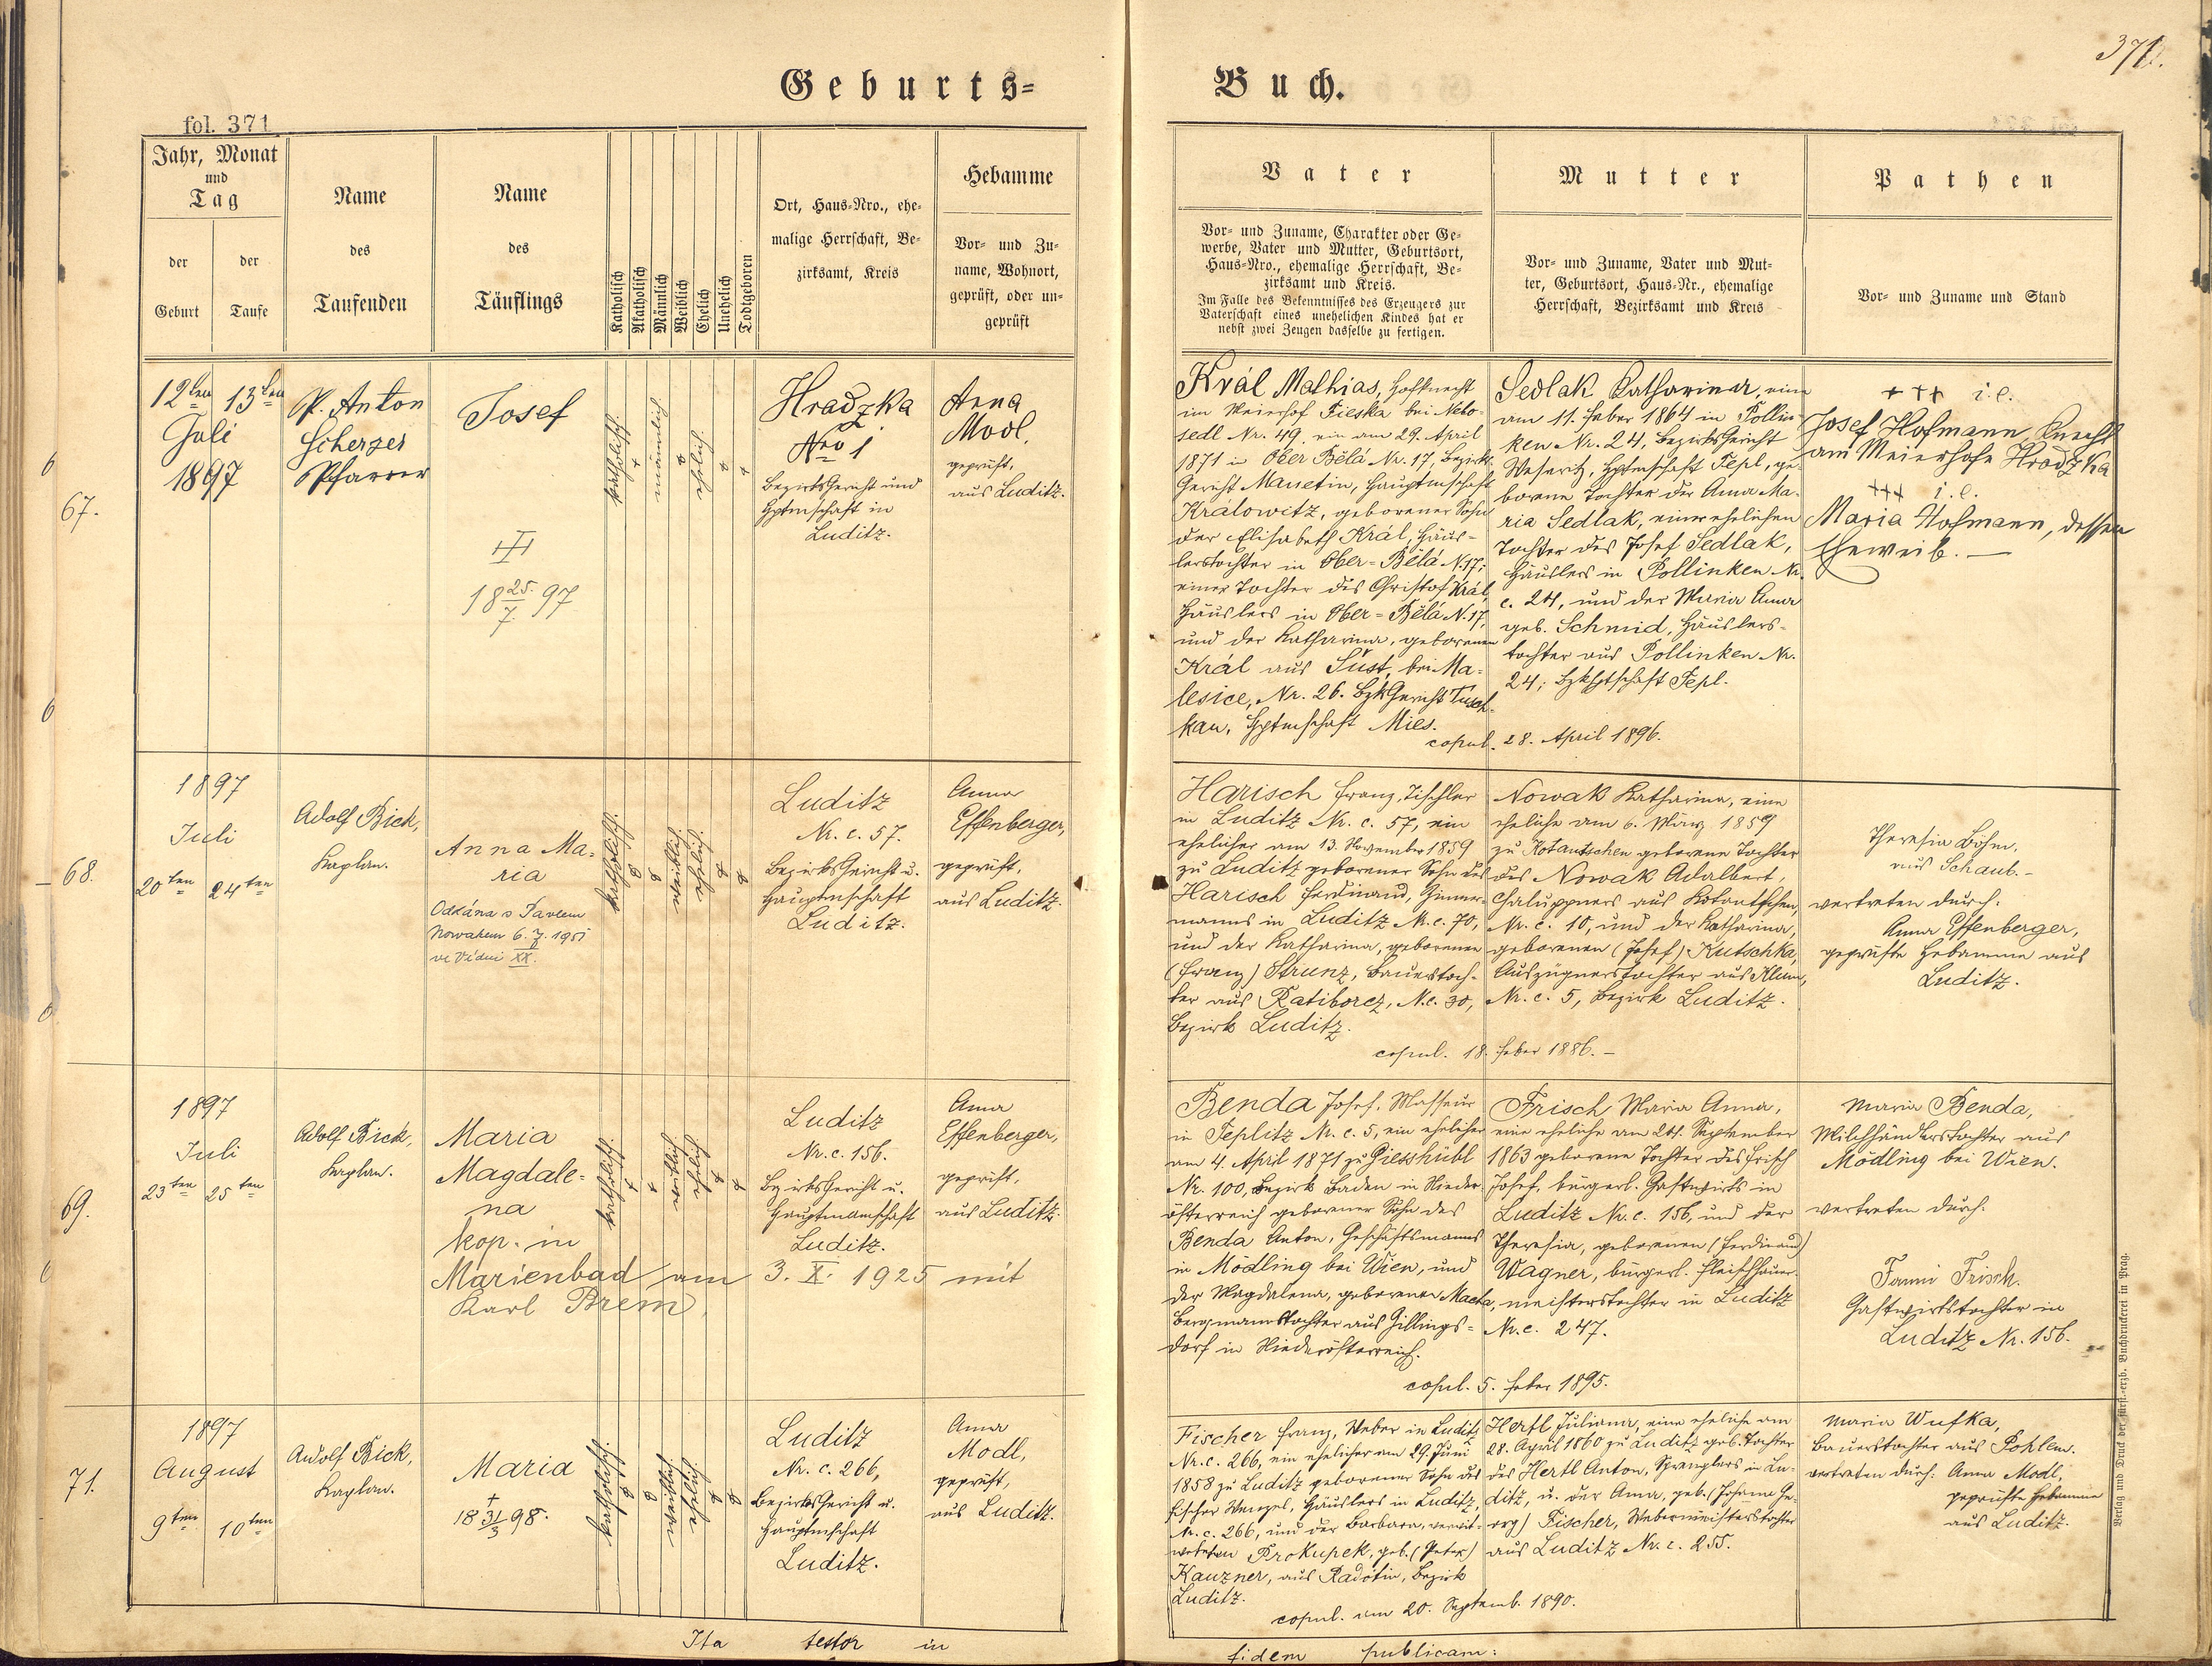 371.
Geburts-
Buch.
fol. 371
Jahr, Monat
und
Tag
der
Geburt
der
Taufe
Name
des
Taufenden
Name
des
Täuflings
Katholisch
Akatholisch
Männlich
Weiblich
Ehelich
Unehelich
Todtgeboren
Ort, Haus-Nro., ehe-
malige Herrschaft, Be-
zirksamt, Kreis
Hebamme
Vor- und Zu-
name, Wohnort,
geprüft, oder un-
geprüft
Vater
Vor- und Zuname, Charakter oder Ge-
werbe, Vater und Mutter, Geburtsort,
Haus-Nro., ehemalige Herrschaft, Be-
zirksamt und Kreis.
Im Falle des Bekenntnisses des Erzeugers zur
Vaterschaft eines unehelichen Kindes hat er
nebst zwei Zeugen dasselbe zu fertigen.
Mutter
Vor- und Zuname, Vater und Mut-
ter, Geburtsort, Haus-Nr., ehemalige
Herrschaft, Bezirksamt und Kreis
Pathen
Vor- und Zuname und Stand
67.
12ten
13ten
Juli
1897
P. Anton
Scherzer
Pfarrer
Josef
18 25./7. 97
katholisch
männlich
ehelich
Hradzka
Nro 1
Bezirksgericht und
Hptmschaft in
Luditz.
Anna
Modl,
geprüft,
aus Luditz.
Král Mathias, Hofknecht
im Meierhof Fieska bei Nebo-
sedl Nr. 49, ein am 29. April
1871 in Ober Bělá Nr. 17, Bezirks-
gericht Manetin, Hauptmschaft
Králowitz, geborener Sohn
der Elisabeth Král, Häus-
lerstochter in Ober-Bělá N. 17;
einer Tochter des Christof Král,
Häuslers in Ober-Bělá N. 17,
und der Katharina, geborenen
Král aus Šust, bei Ma-
lesice, Nr. 26. BzkGericht Tusch-
kau, Hptmschaft Mies.
Sedlak Katharina, eine
am 11. Feber 1864 in Pollin-
ken Nr. 24, Bezirksgericht
Weseritz, Hptmschaft Tepl, ge-
borene Tochter der Anna Ma-
ria Sedlak, einer ehelichen
Tochter des Josef Sedlak,
Häuslers in Pollinken Nr.
c. 24, und der Maria Anna
geb. Schmid, Häuslers-
tochter aus Pollinken Nr.
24; Bzkhptschaft Tepl.
copul. 28. April 1896.
+++ i.e.
Josef Hofmann, Knecht
am Meierhofe Hradzka
+++ i.e.
Maria Hofmann, dessen
Eheweib.
68.
1897
Juli
20ten
24ten
Adolf Bick,
Kaplan.
Anna Ma-
ria
Oddána s Pavlem
Nowakem 6. 7. 1951
ve Vídni XX.
katholisch
weiblich
ehelich
Luditz
Nr. c. 57.
Bezirksgericht u.
Hauptmschaft
Luditz.
Anna
Effenberger,
geprüft,
aus Luditz.
Harisch Franz, Tischler
in Luditz Nr. c. 57, ein
ehelicher am 13. November 1859
zu Luditz geborener Sohn des
Harisch Ferdinand, Zimmer-
manns in Luditz N. c. 70,
und der Katharina, geborenen
(Franz) Strunz, Bauerstoch-
ter aus Ratiborcz, N.c. 30,
Bezirk Luditz.
Nowak Katharina, eine
eheliche am 6. März 1859
zu Kotantschen geborene Tochter
des Nowak Adalbert,
Chaluppners aus Kotantschen,
Nr. c. 10, und der Katharina,
geborenen (Josef) Kutschka,
Auszügnerstochter aus Klum,
Nr. c. 5, Bezirk Luditz.
copul. 18. Feber 1886.
Theresia Böhm,
aus Schaub.
vertreten durch:
Anna Effenberger,
geprüfte Hebamme aus
Luditz.
69.
1897
Juli
23ten
25ten
Adolf Bick,
Kaplan.
Maria
Magdale-
na
kop. in
Marienbad am 3. X. 1925 mit
Karl Brem.
katholisch
weiblich
ehelich
Luditz
Nr. c. 156.
Bezirksgericht u.
Hauptmannschaft
Luditz.
Anna
Effenberger,
geprüft,
aus Luditz.
Benda Josef, Masseur
in Teplitz N. c. 5, ein ehelicher
am 4. April 1871 zu Giesshübl
Nr. 100, Bezirk Baden in Nieder-
österreich geborener Sohn des
Benda Anton, Geschäftsmanns
in Mödling bei Wien, und
der Magdalena, geborenen Macta,
Bergmannstochter aus Zillings-
dorf in Niederösterreich.
Frisch Maria Anna,
eine eheliche am 24. September
1863 geborene Tochter des Frisch
Josef, bürgerl. Gastwirts in
Luditz Nr. c. 156, und der
Theresia, geborenen (Ferdinand)
Wagner, bürgerl. Fleischhauer-
meisterstochter in Luditz
Nr. c. 247.
copul. 5. Feber 1895.
Maria Benda,
Milchhändlerstochter aus
Mödling bei Wien.
vertreten durch:
Fanni Frisch.
Gastwirtstochter in
Luditz Nr. 156.
71.
1897
August
9ten
10ten
Adolf Bick,
Kaplan.
Maria
+
18 31/3 98.
katholisch
weiblich
ehelich
Luditz
Nr. c. 266,
Bezirksgericht u.
Hauptmschaft
Luditz.
Anna
Modl,
geprüft,
aus Luditz.
Fischer Franz, Weber in Luditz
Nr. c. 266, ein ehelicher am 29. Juni
1858 zu Luditz geborener Sohn des
Fischer Wenzel, Häuslers in Luditz,
N. c. 266, und der Barbara, verwit-
weten Prokupek, geb. (Peter)
Kauzner, aus Radotin, Bezirk
Luditz.
Hertl Juliana, eine eheliche am
28. April 1860 zu Luditz geb. Tochter
des Hertl Anton, Spenglers in Lu-
ditz, u. der Anna, geb. (Johann Ge-
org) Fischer, Webermeisterstochter
aus Luditz Nr. c. 255.
copul. am 20. Septemb. 1890.
Maria Wufka,
Bauerstochter aus Pohlem.
vertreten durch: Anna Modl,
geprüfte Hebamme
aus Luditz.
Ita testor in
fidem publicam:
Verlag und Druck der fürst.-erzb. Buchdruckerei in Prag.